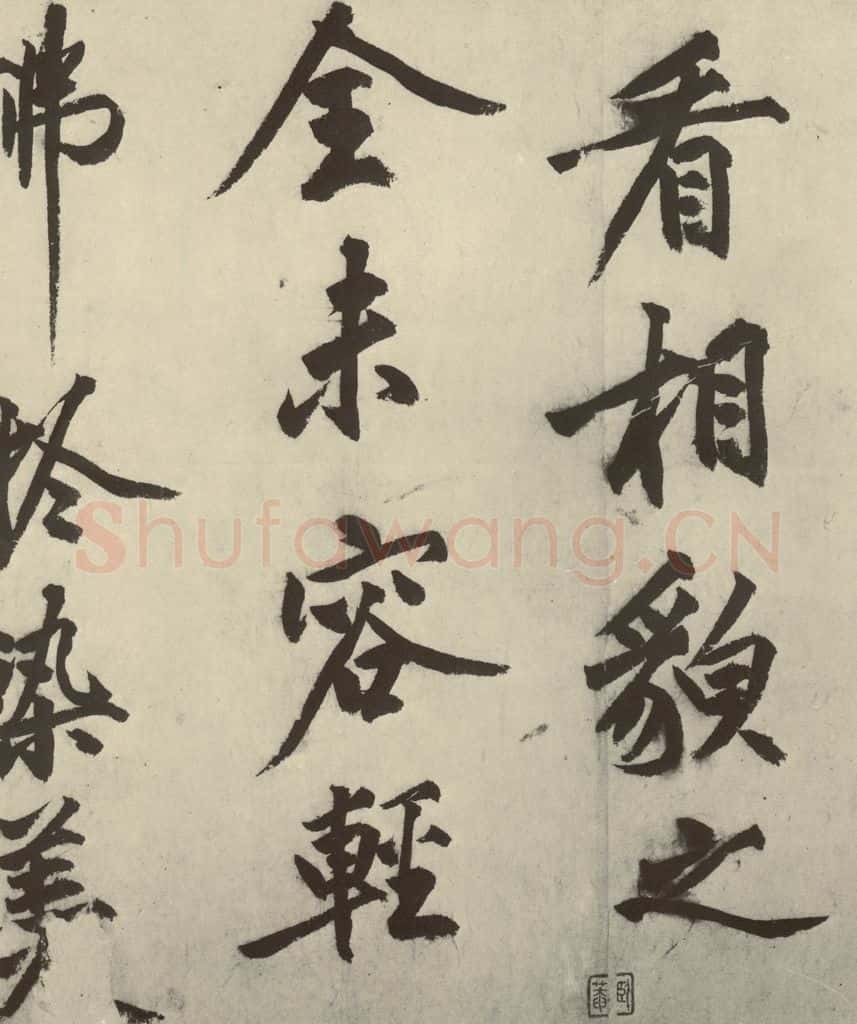 看相貌之
全未容輕
染
臥菴
Shufawang.CN